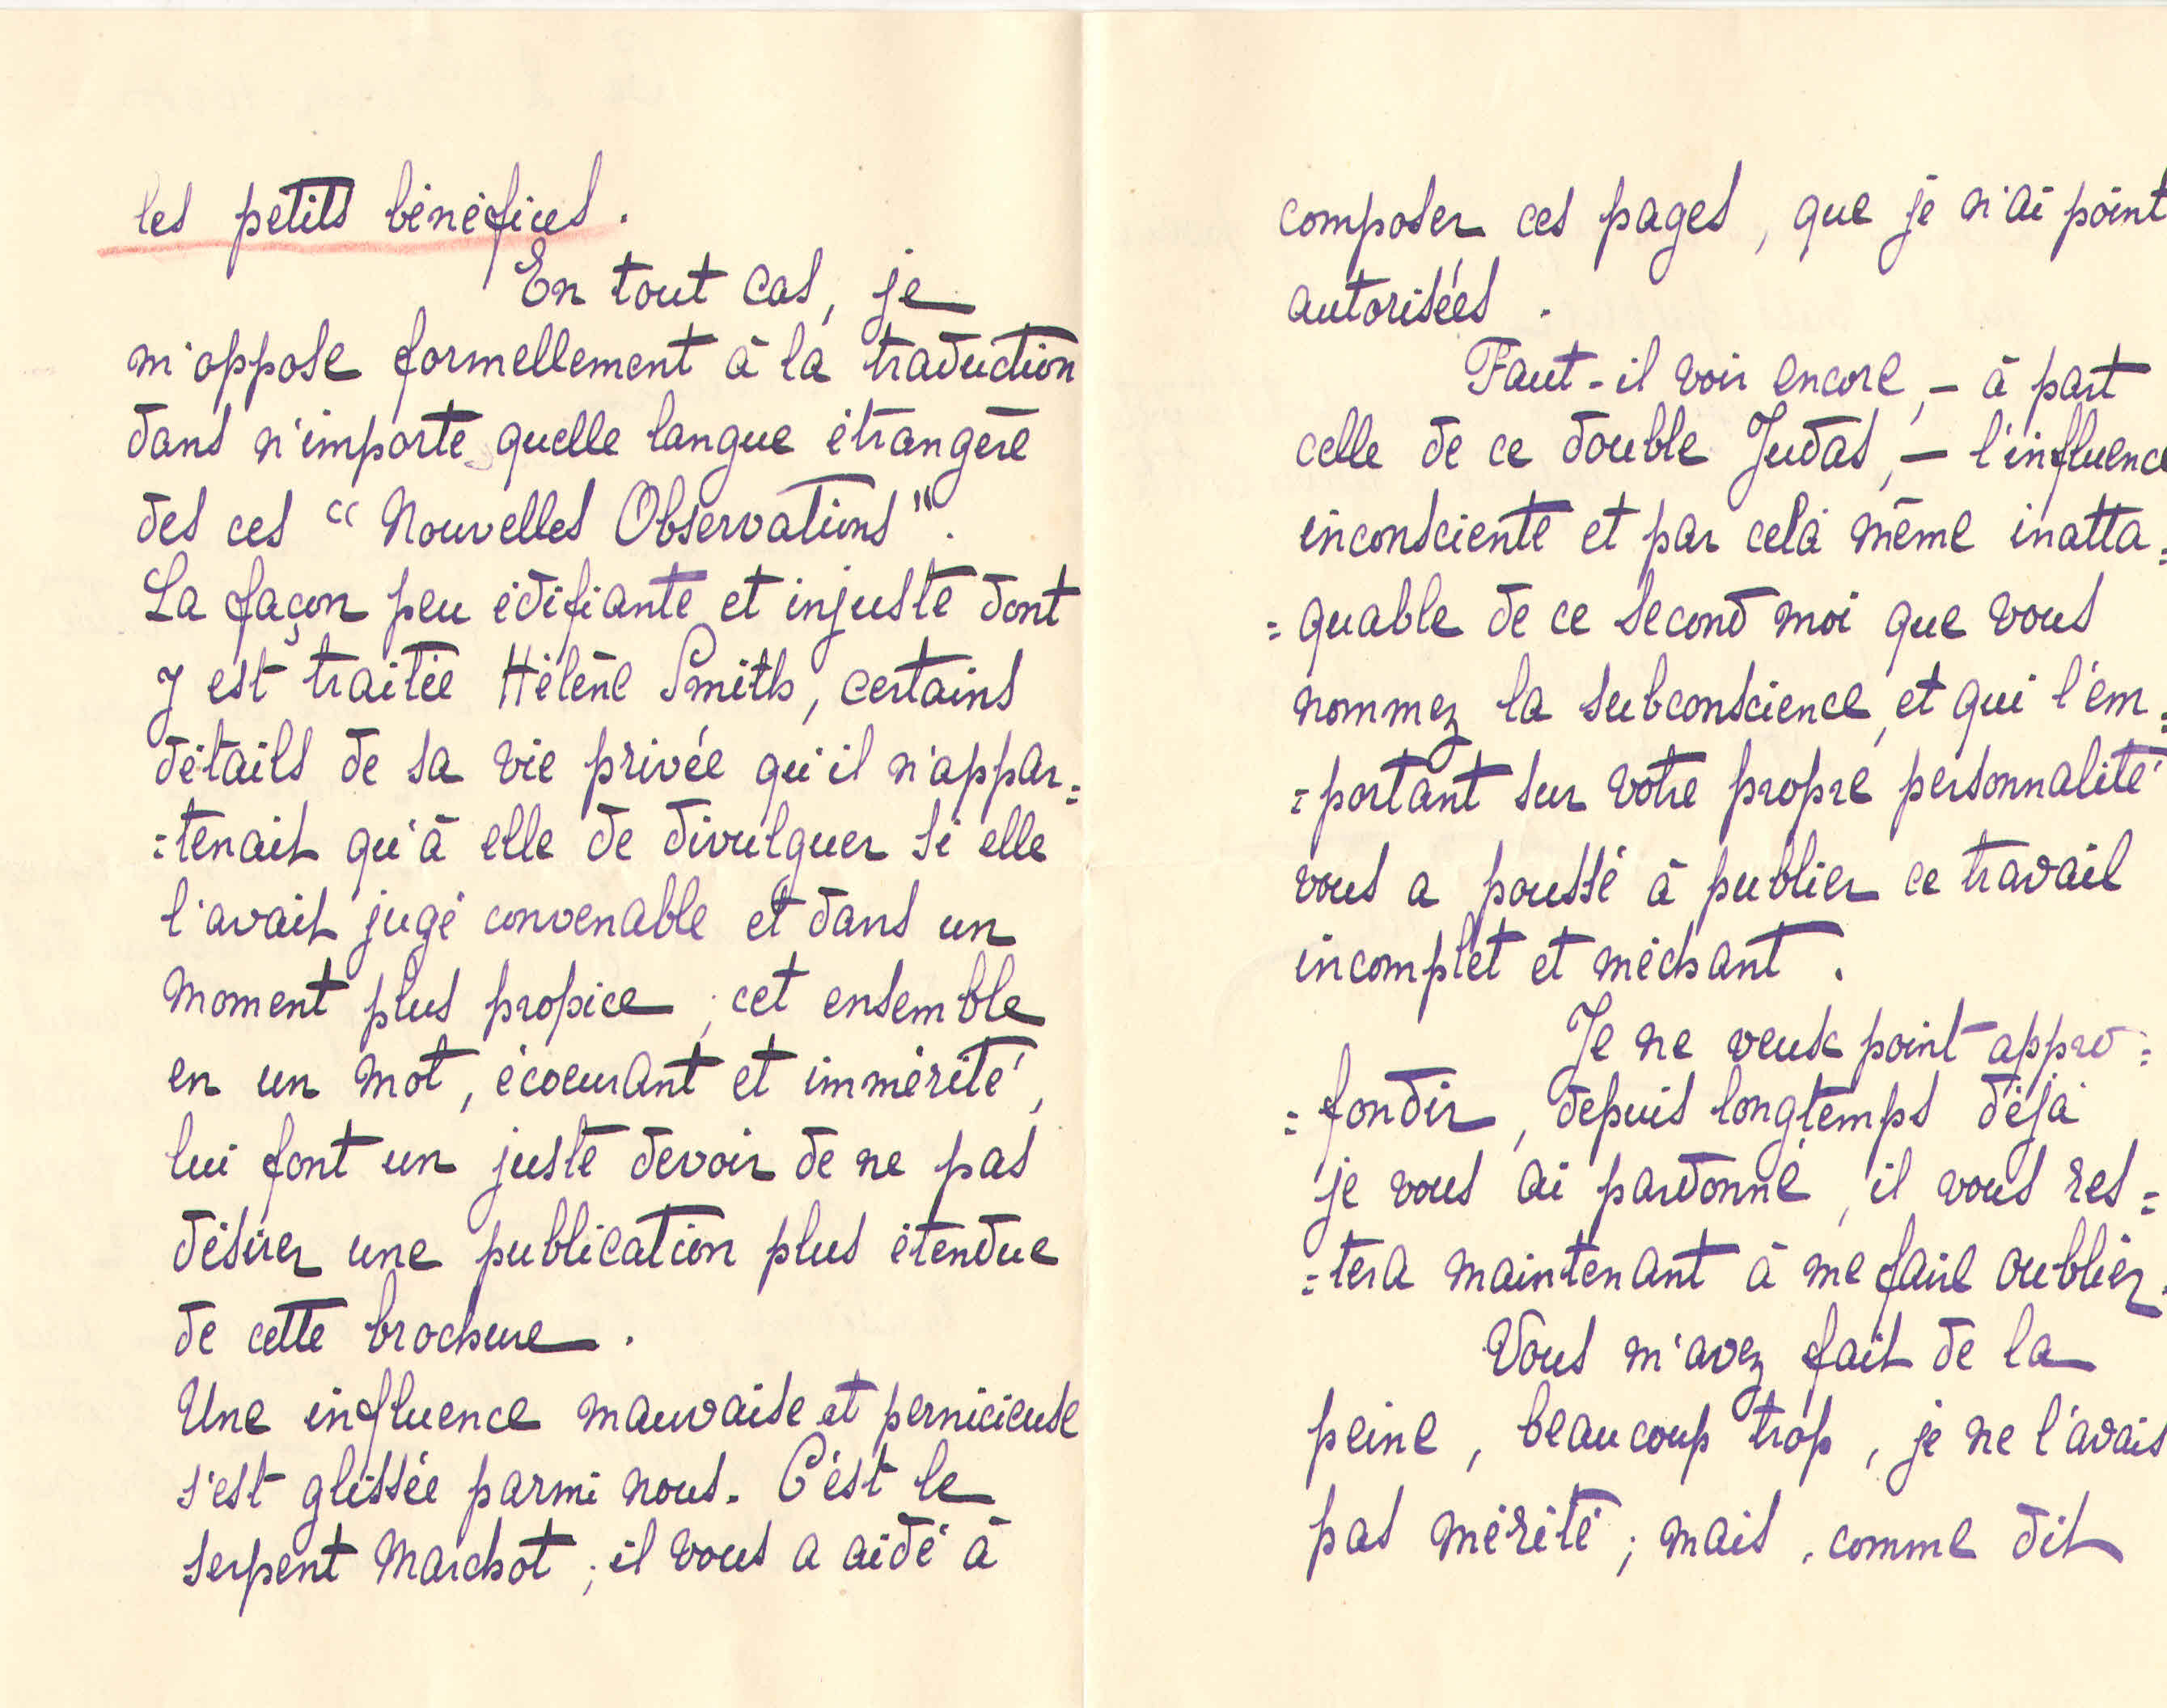 les petits bénéfices.
En tout cas, je
m'oppose formellement à la traduction
dans n'importe quelle langue étrangère
des ces "Nouvelles Observations".
La façon peu édifiante et injuste dont
y est traitée Hélène Smith, certains
détails de sa vie privée qu'il n'appar=
=tenait qu'à elle de divulguer si elle
l'avait jugé convenable et dans un
moment plus propice ; cet ensemble
en un mot, écoeurant et immérité,
lui font un juste devoir de ne pas
désirer une publication plus étendue
de cette brochure.
Une influence mauvaise et pernicieuse
s'est glissée parmi nous. C'est le
serpent Marchot ; il vous a aidé à
composer ces pages, que je n'ai point
autorisées.
Faut-il voir encore, – à part
celle de ce double Judas, – l'influence
inconsciente et par celà même inatta=
=quable de ce second moi que vous
nommez la subconscience, et qui l'em=
=portant sur votre propre personnalité
vous a poussé à publier ce travail
incomplet et méchant.
Je ne veux point appro=
=fondir, depuis longtemps déjà
je vous ai pardonné, il vous res=
=tera maintenant à me faire oublier.
Vous m'avez fait de la
peine, beaucoup trop, je ne l'avais
pas mérité ; mais, comme dit